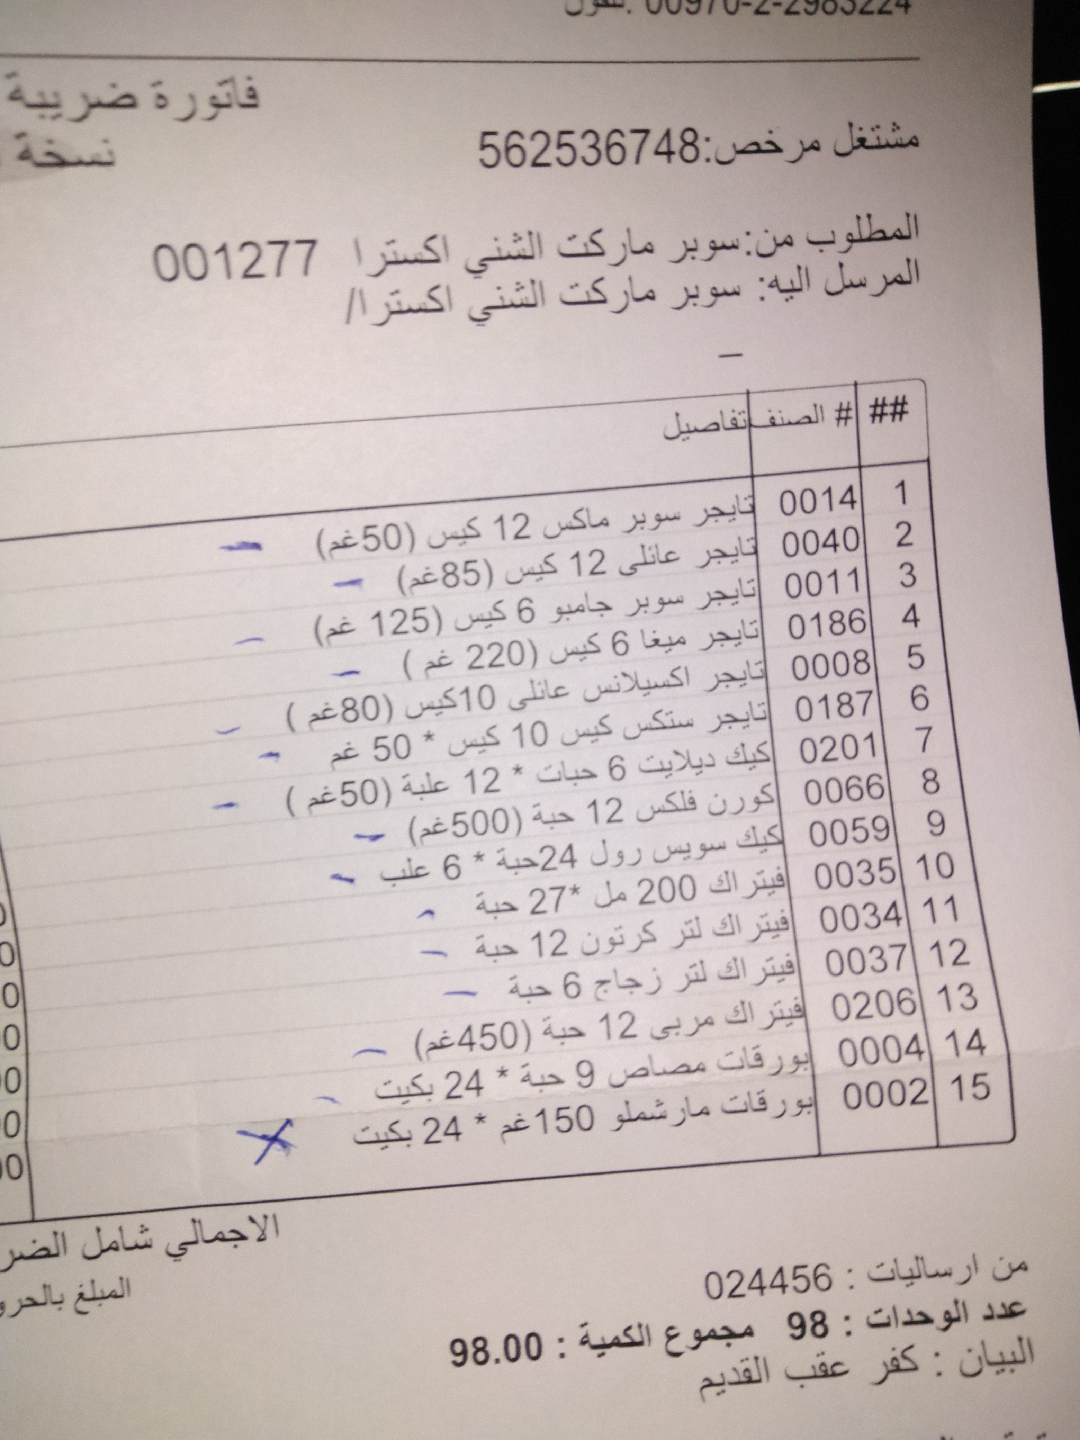 تلفون: 00970-2-2983224
فاتورة ضريبة
نسخة
مشتغل مرخص:562536748
المطلوب من:سوبر ماركت الشني اكسترا 001277
المرسل اليه: سوبر ماركت الشني اكسترا/
_
## # الصنف تفاصيل
1 0014 تايجر سوبر ماكس 12 كيس (50غم)
2 0040 تايجر عائلي 12 كيس (85غم)
3 0011 تايجر سوبر جامبو 6 كيس (125 غم)
4 0186 تايجر ميغا 6 كيس (220 غم )
5 0008 تايجر اكسيلانس عائلي 10كيس (80غم )
6 0187 تايجر ستكس كيس 10 كيس * 50 غم
7 0201 كيك ديلايت 6 حبات * 12 علبة (50غم )
8 0066 كورن فلكس 12 حبة (500غم)
9 0059 كيك سويس رول 24حبة * 6 علب
10 0035 فيتراك 200 مل *27 حبة
11 0034 فيتراك لتر كرتون 12 حبة
12 0037 فيتراك لتر زجاج 6 حبة
13 0206 فيتراك مربى 12 حبة (450غم)
14 0004 بورقات مصاص 9 حبة * 24 بكيت
15 0002 بورقات مارشملو 150غم * 24 بكيت
الاجمالي شامل
المبلغ
من ارساليات : 024456
عدد الوحدات : 98 مجموع الكمية : 98.00
البيان : كفر عقب القديم